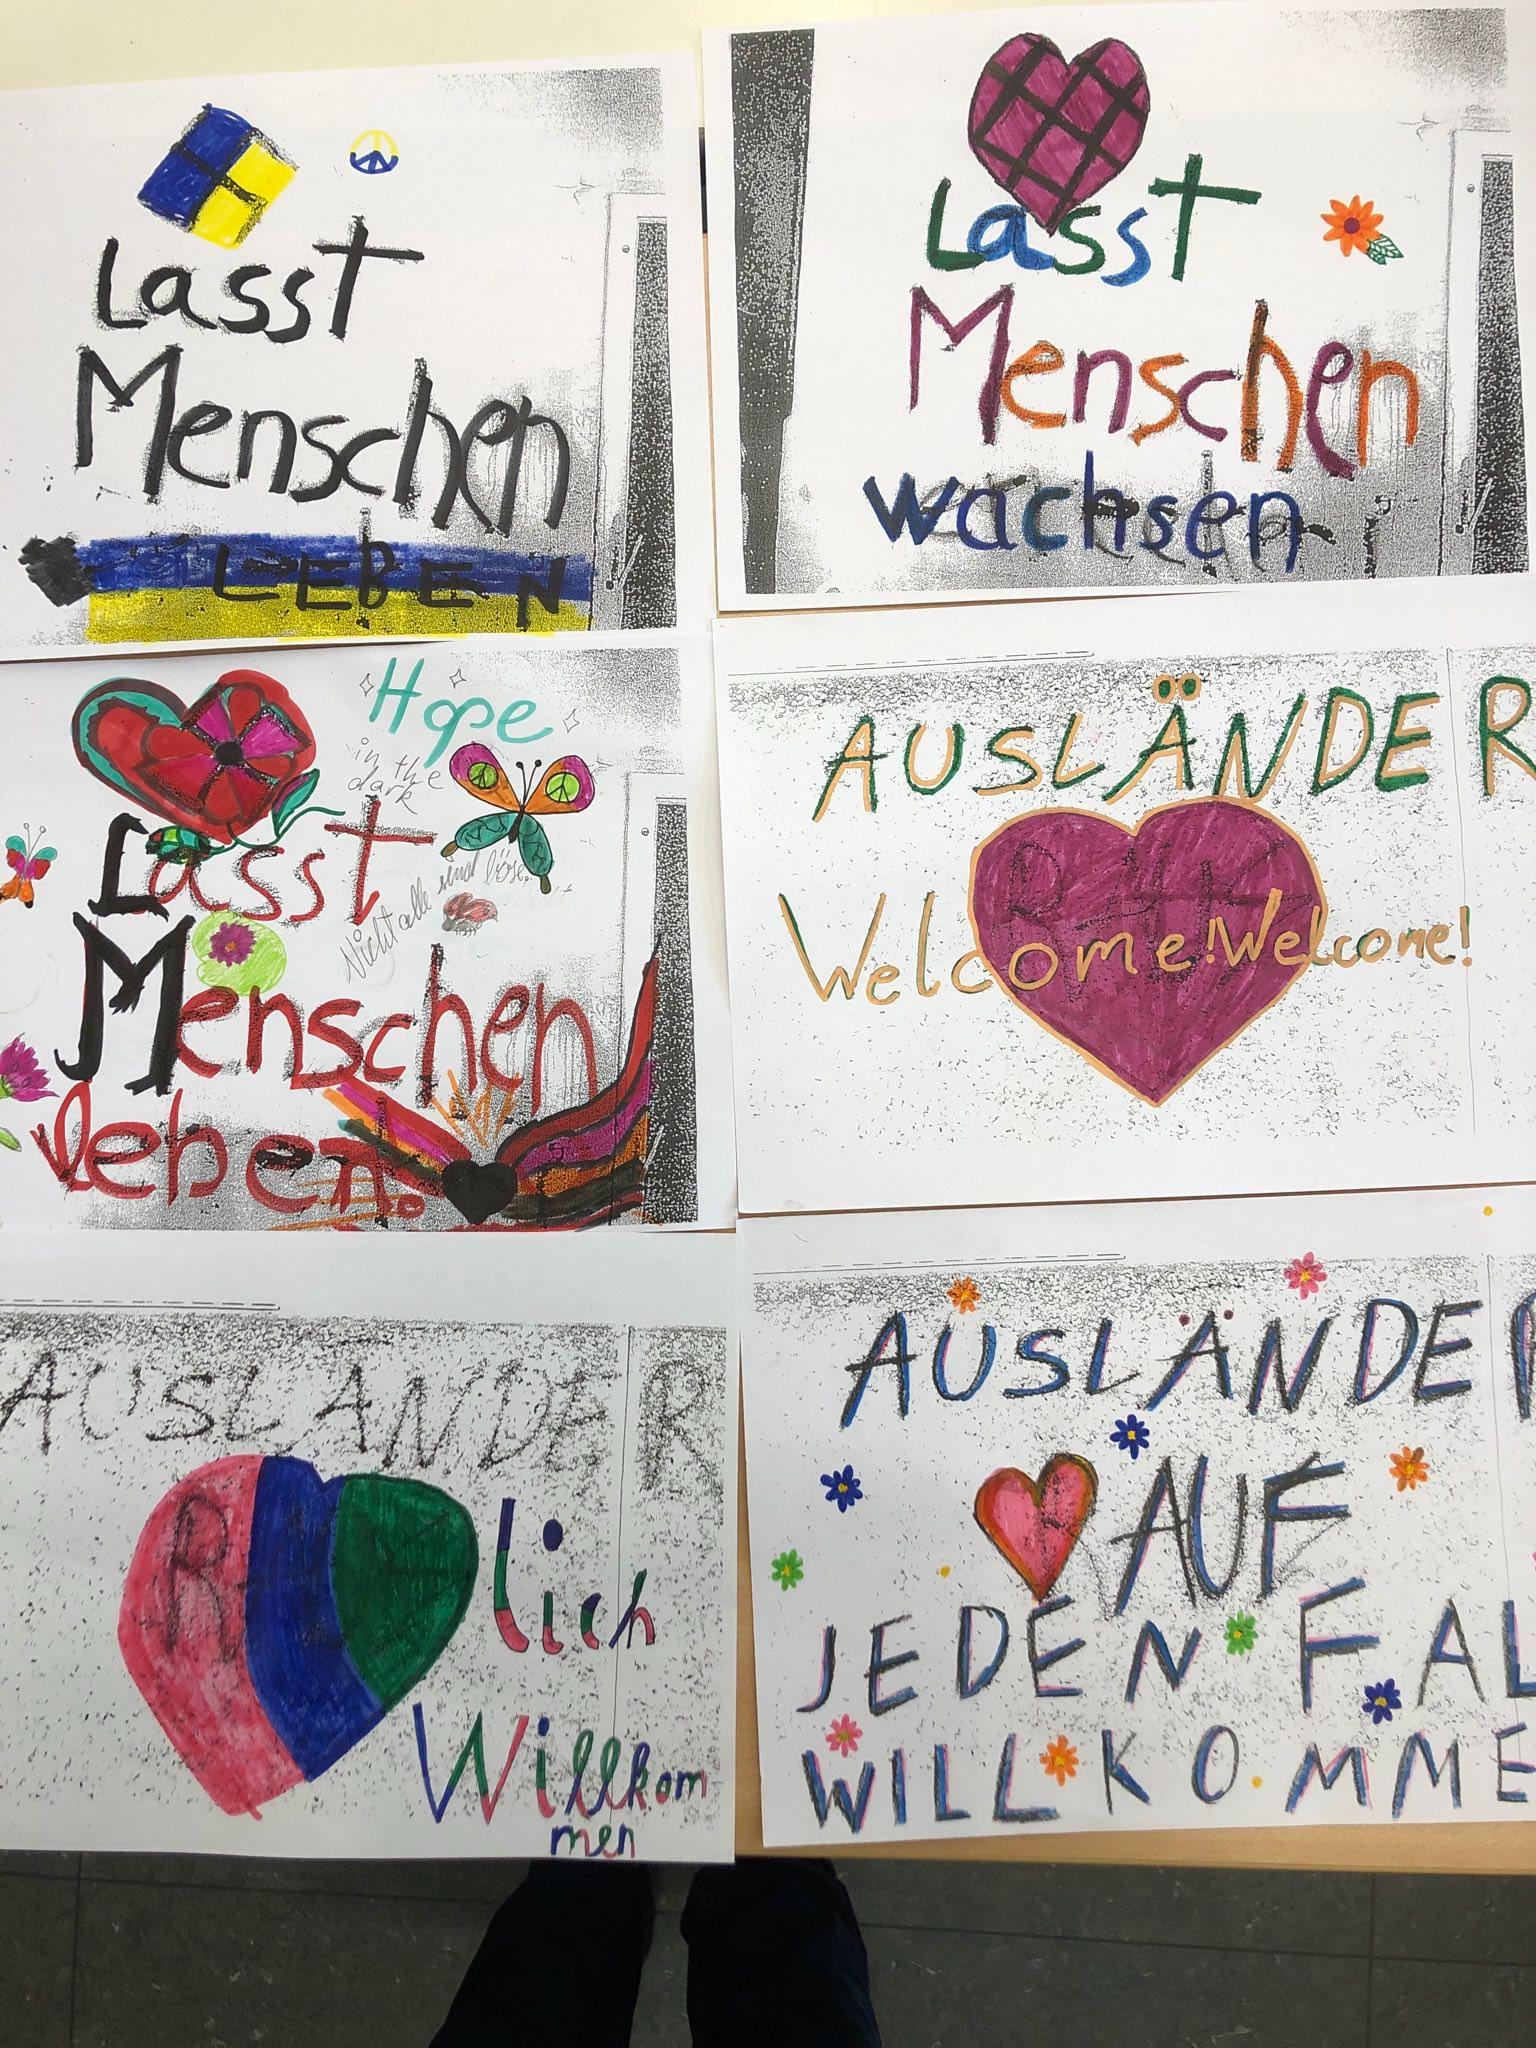 Lasst
Menschen
LEBEN
Lasst
Menschen
wachsen
Hope
in the
dark
Lasst
Nicht alle sind böse.
Menschen
leben.
AUSLÄNDER
RAUS
Welcome! Welcome!
AUSLÄNDER
lich
Willkom
men
AUSLÄNDER
AUF
JEDEN FAL
WILLKOMME